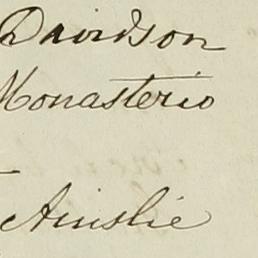 Davidson
Monasterio
Ainslie